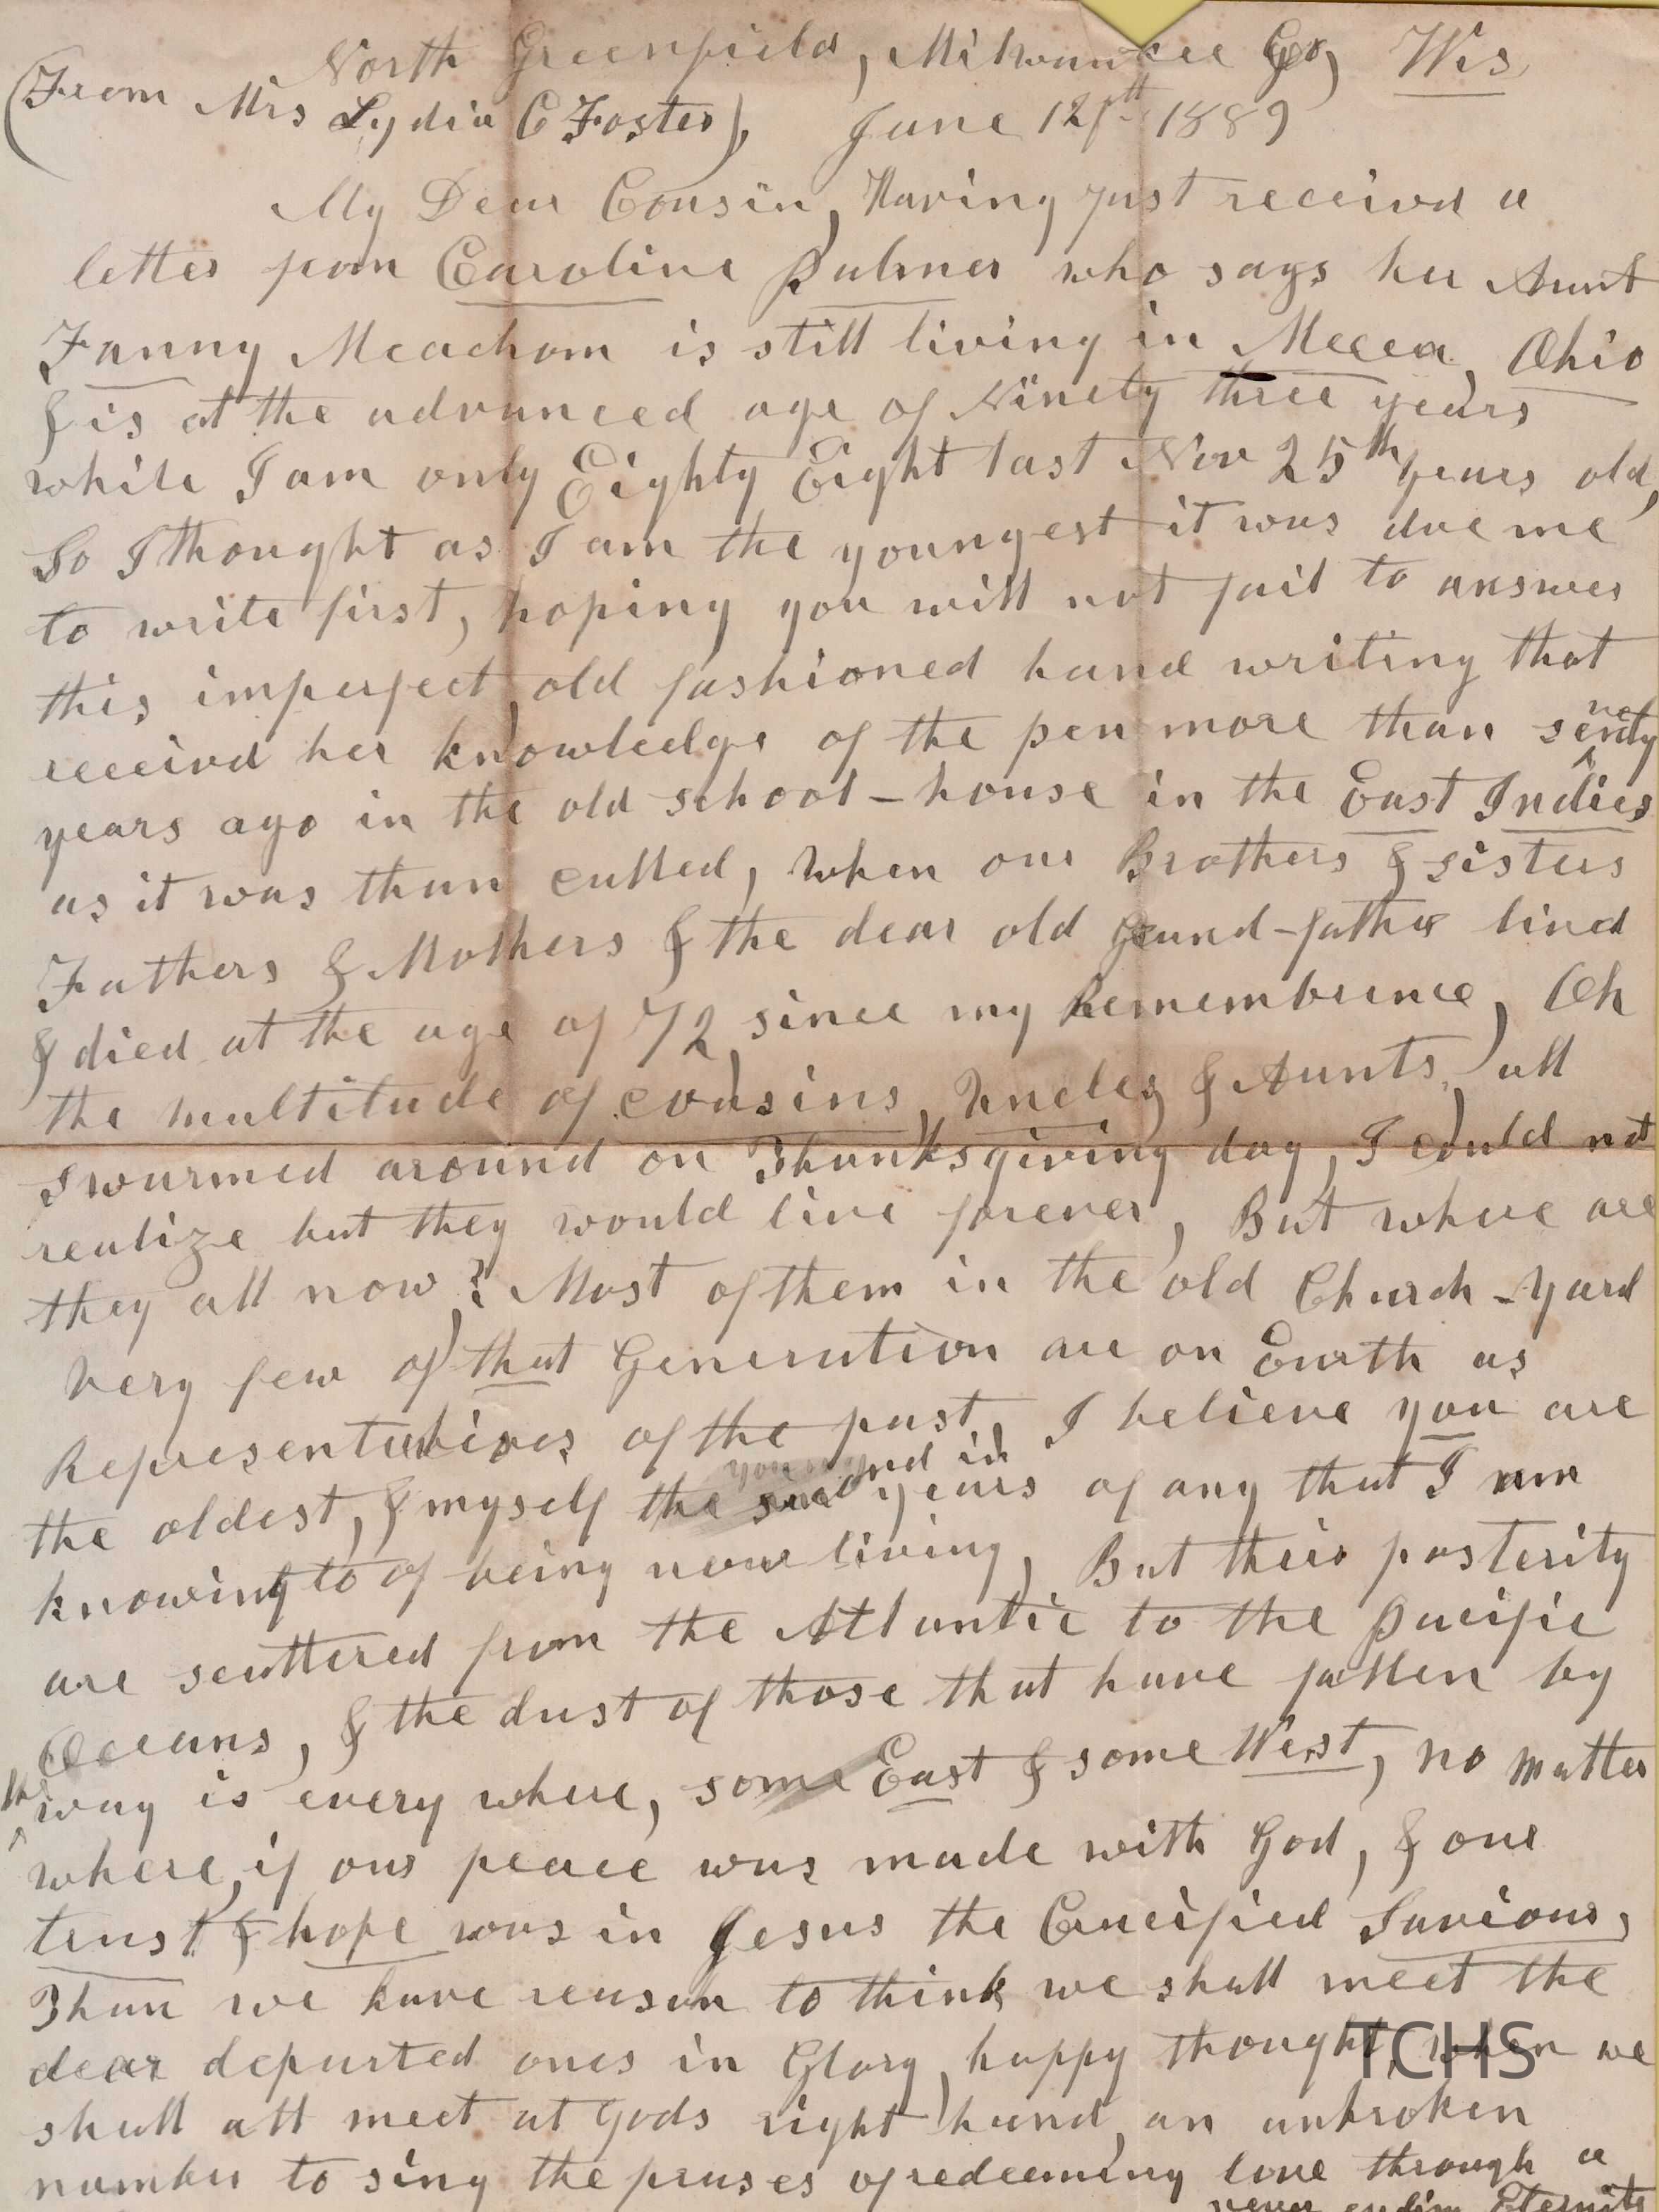 North Greenfield, Milwaukee Co, Wis,
(From Mrs Lydia C Foster), June 12th 1889
My Dear Cousin, Having just receivd a
letter from Caroline Palmer who says her Aunt
Fanny Meachom is still living in Mecca, Ohio
& is at the advanced age of Ninety three years
while I am only Eighty Eight last Nov 25th years old,
So I thought as I am the youngest it was due me
to write first, hoping you will not fail to answer
this imperfect, old fashioned hand writing that
receivd her knowledge of the pen more than seventy
years ago in the old school-house in the East Indies
as it was than called, When our Brothers & sisters
Fathers & Mothers & the dear old grand-father lived
& died at the age of 72, since my Remembrance, Oh
the multitude of cousins, Uncles, & Aunts, all
swarmed around on Thanksgiving day, I could not
realize but they would live forever, But where are
they all now,? Most of them in the old Church-Yard
Very few of that Generation are on Earth as
Representatives of the past, I believe you are
the oldest, & myself the second in years of any that I am
knowing to of being now living, But their posterity
are scattered from the Atlantic to the Pacific
Oceans, & the dust of those that have fallen by
the way is every where, some East & some West, no matter
where, if our peace was made with God, & our
trust & hope was in Jesus the Crucified Saviour,
Than we have reason to think we shall meet the
dear departed ones in Glory, happy thought, when we
shall all meet at Gods right hand, an unbroken
number to sing the prases of redeeming love through a
never ending Eternity
TCHS